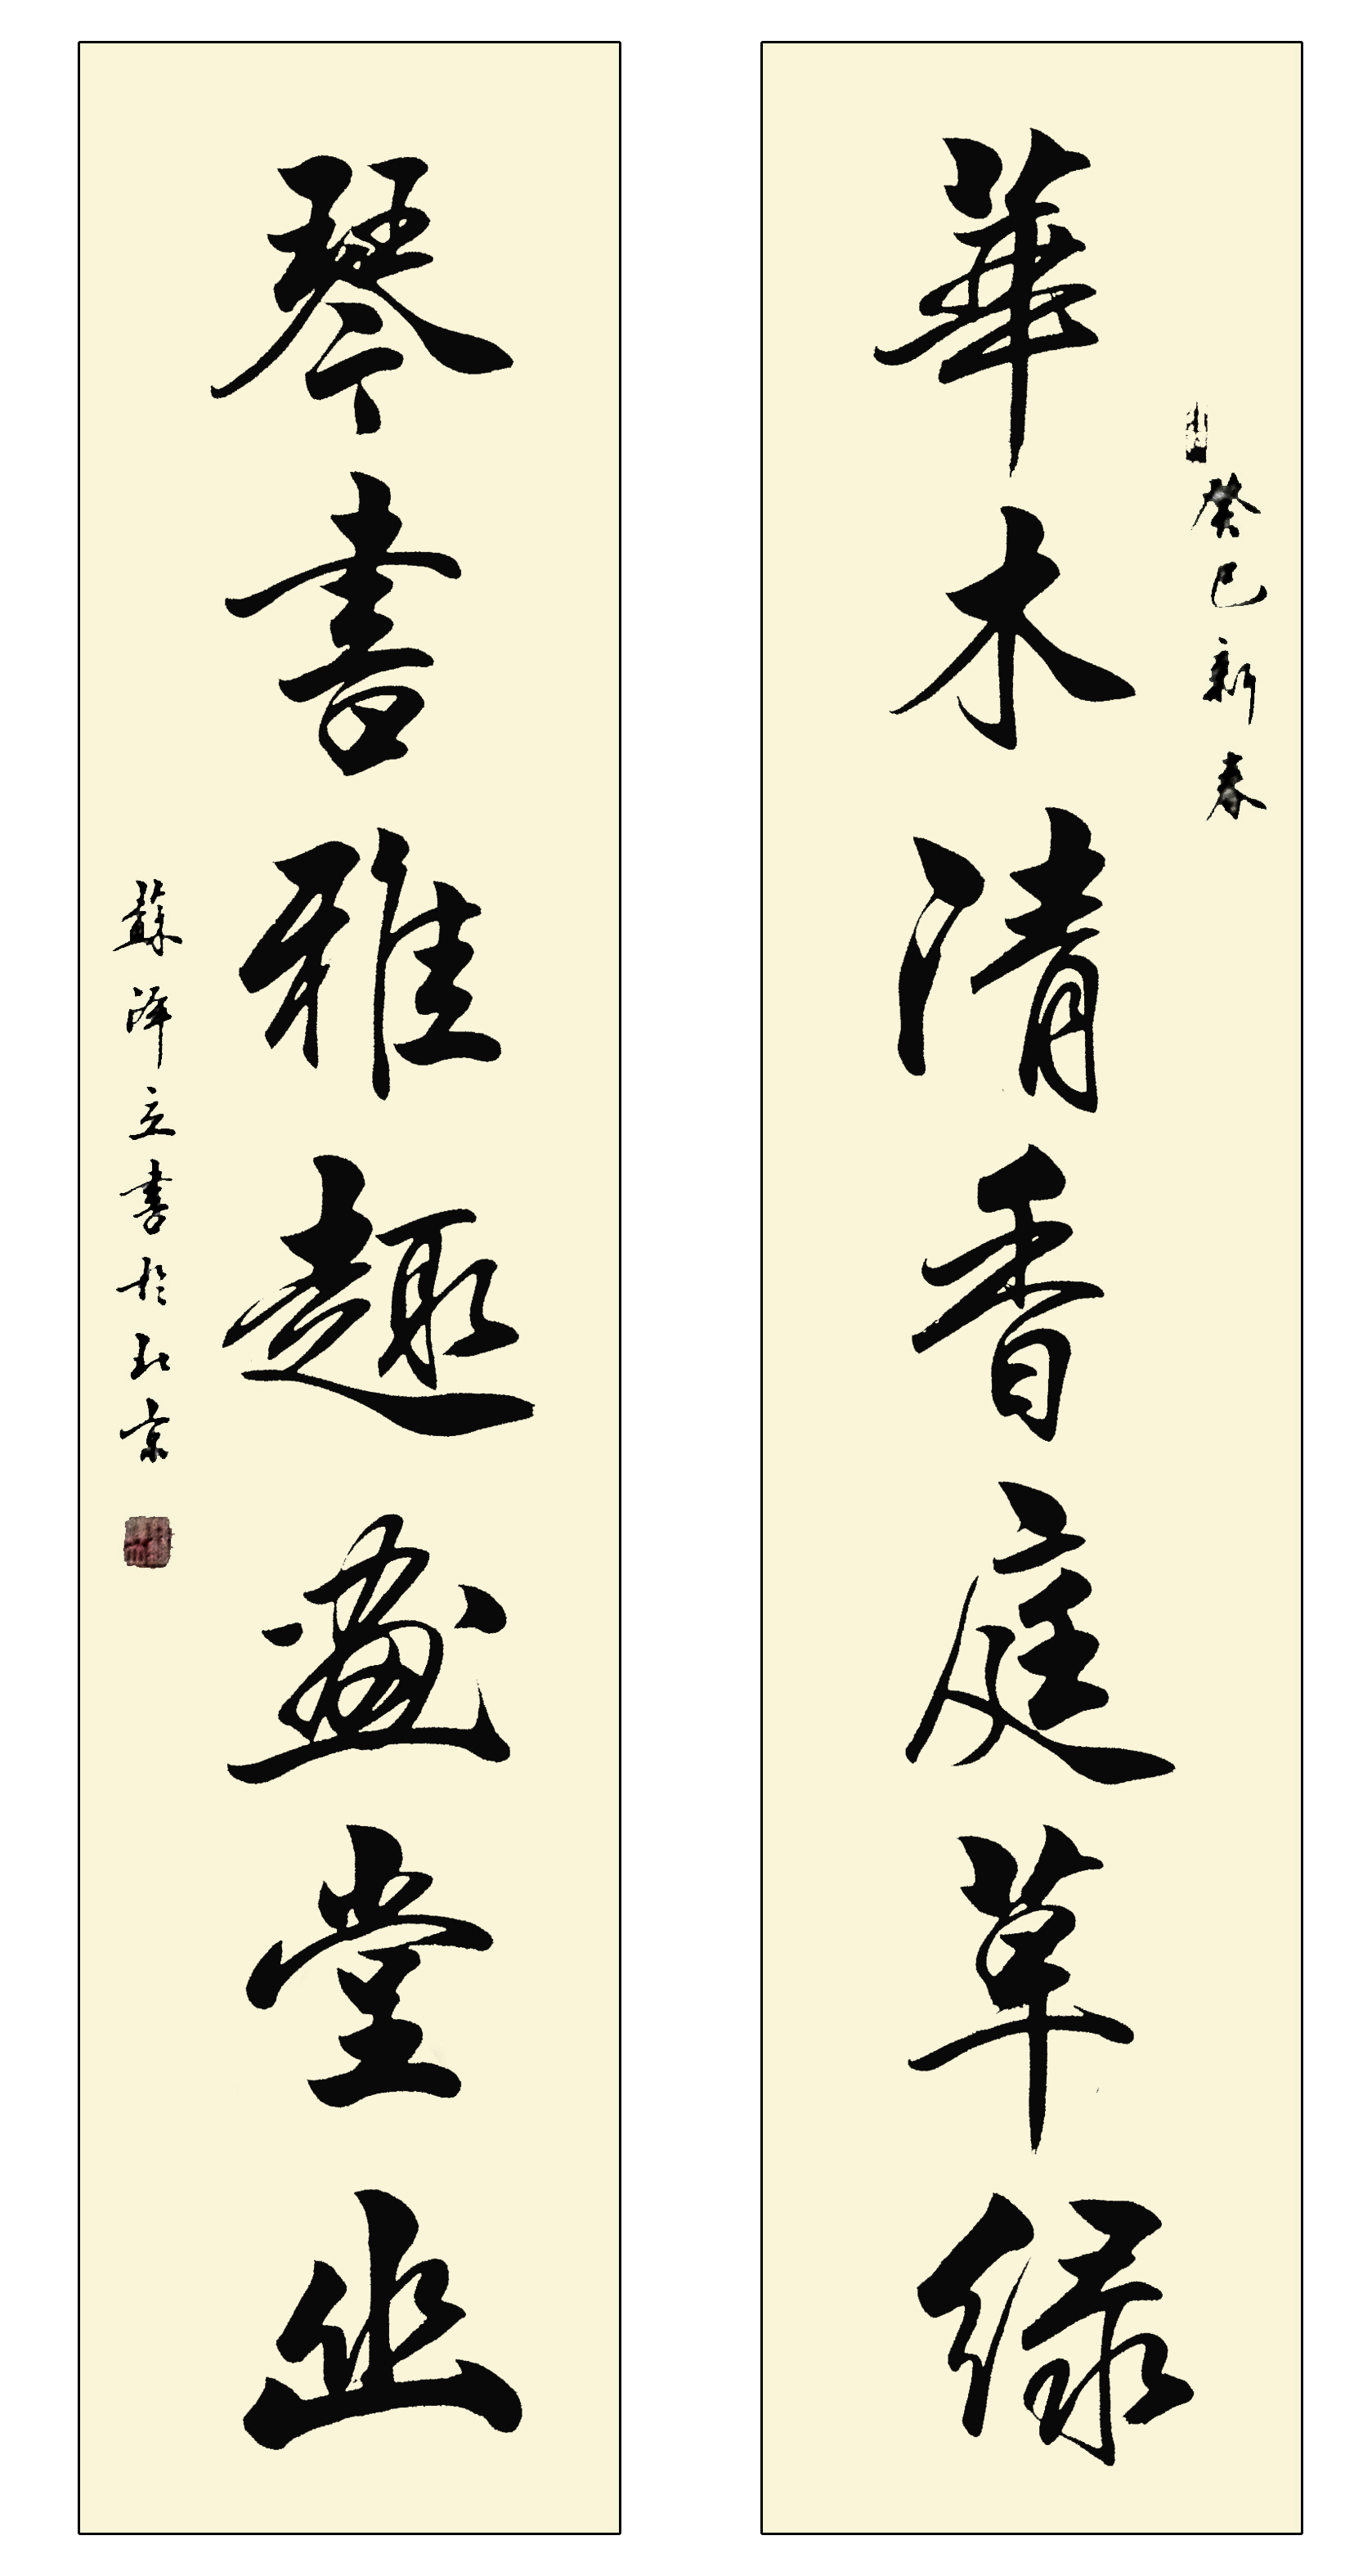 華木清香庭草緑
癸巳新春
琴書雅趣畫堂幽
蘇澤立書於北京